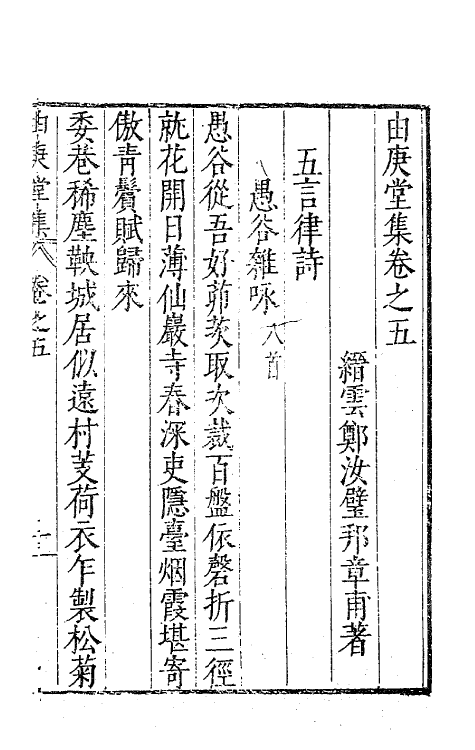 由庚堂集卷之五
縉雲鄭汝璧邦章甫著
五言律詩
愚谷雜咏八首
愚谷從吾好茆茨取次裁百盤依磬折三徑
就花開日薄仙巖寺春深吏隱臺烟霞堪寄
傲青鬢賦歸來
委巷稀塵鞅城居似遠村芰荷衣乍製松菊
由庚堂集 卷之五